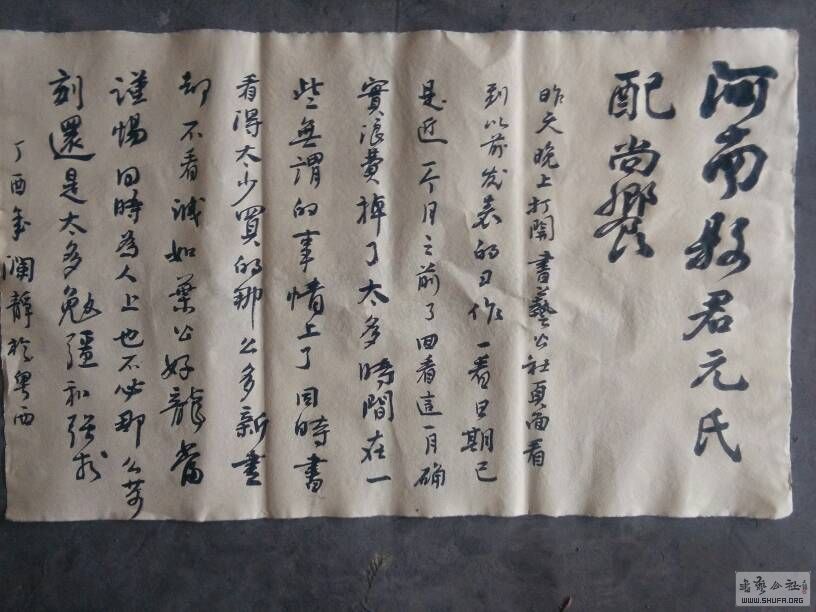 河南县君元氏
配尚飨
昨天晚上打開書藝公社頁面看
到以前发表的习作一看日期已
是近一个月之前了回看這一月确
實浪費掉了太多時間在一
些無謂的事情上了同時書
看得太少買的那么多新書
却不看诚如葉公好龍當
謹惕同時為人上也不必那么苛
刻還是太多勉彊和强求
丁酉年瀾靜於粤西
書藝公社
WWW.SHUFA.ORG